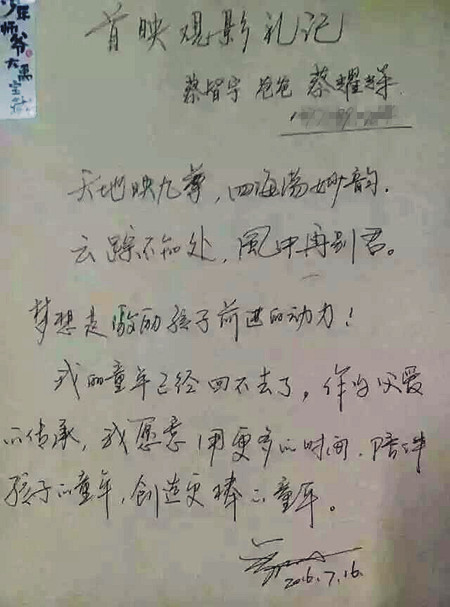 少年
师爷
大黑
宝藏
首映观影礼记
蔡智宇 爸爸 蔡耀
天地映九尊，四海荡妙韵.
云踪不知处，風中再别君。
梦想是激励孩子前进的动力！
我的童年已经回不去了，作为父爱
的传承，我愿意用更多的时间，陪伴
孩子的童年，创造更棒的童年。
2016.7.16.